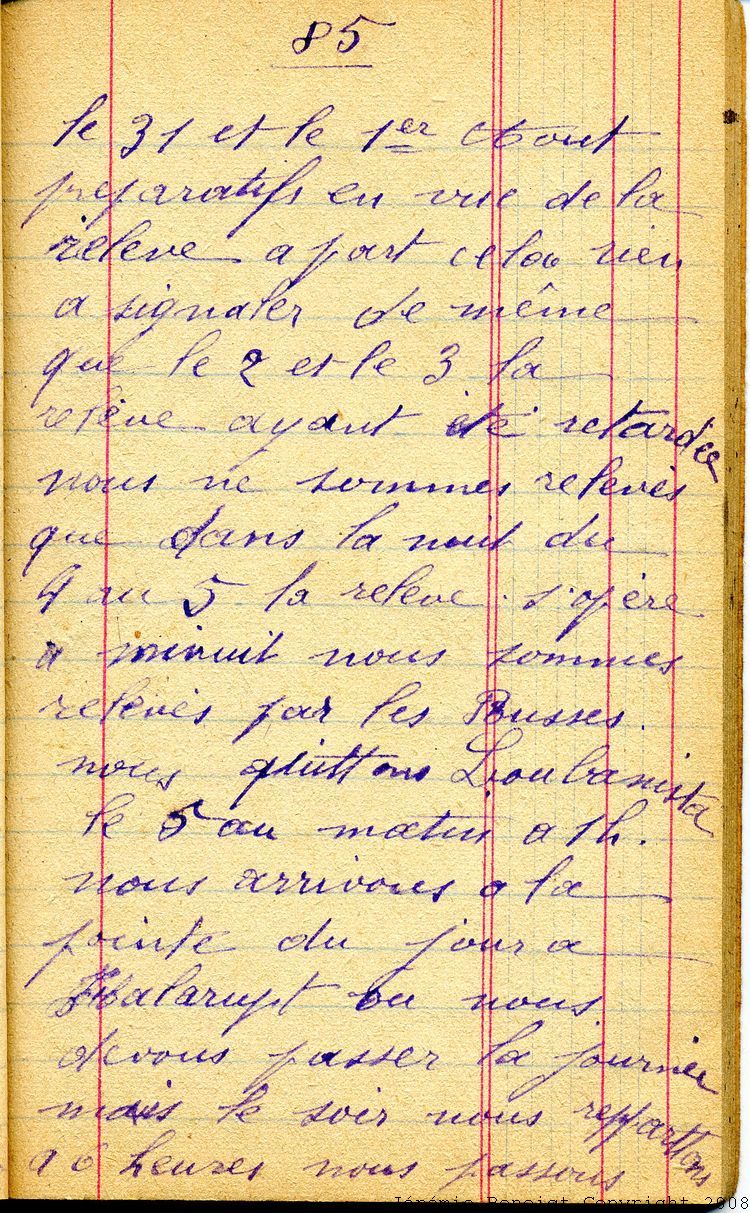 85
le 31 et le 1er Aout
preparatifs en vue de la
relève apart cela rien
a signaler de même
que le 2 et le 3 la
relève ayant été retardée
nous ne sommes relevés
que dans la nuit du
4 au 5 la relève s'opère
a minuit nous sommes
relevés par les Russes.
nous quittons Loubanista
le 5 au matin a 1h.
nous arrivons a la
pointe du jour a
ou nous
devons passer la journée
mais le soir nous reparttons
a 6 heures nous passons
Jérémie Benoist Copyright 2008